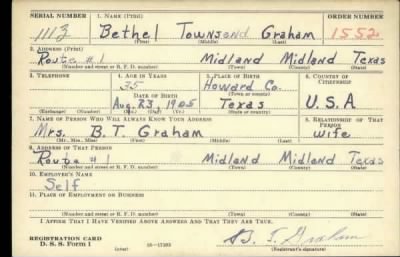 SERIAL NUMBER 1. NAME (Print) ORDER NUMBER
1113 Bethel Townsend Graham 1552
(First) (Middle) (Last)
2. ADDRESS (Print)
Route #1 Midland Midland Texas
(Number and street or R. F. D. number) (Town) (County) (State)
3. TELEPHONE 4. AGE IN YEARS 5. PLACE OF BIRTH 6. COUNTRY OF CITIZENSHIP
35 Howard Co.
(Town or county)
DATE OF BIRTH
Aug. 23, 1905 Texas U.S.A
(Exchange) (Number) (Mo.) (Day) (Yr.) (State or country)
7. NAME OF PERSON WHO WILL ALWAYS KNOW YOUR ADDRESS 8. RELATIONSHIP OF THAT PERSON
Mrs. B.T. Graham wife
(Mr., Mrs., Miss) (First) (Middle) (Last)
9. ADDRESS OF THAT PERSON
Route #1 Midland Midland Texas
(Number and street or R. F. D. number) (Town) (County) (State)
10. EMPLOYER'S NAME
Self
11. PLACE OF EMPLOYMENT OR BUSINESS
(Number and street or R. F. D. number) (Town) (County) (State)
I AFFIRM THAT I HAVE VERIFIED ABOVE ANSWERS AND THAT THEY ARE TRUE.
REGISTRATION CARD
D. S. S. Form 1 (over) 16-17105 B. T. Graham
(Registrant's signature)